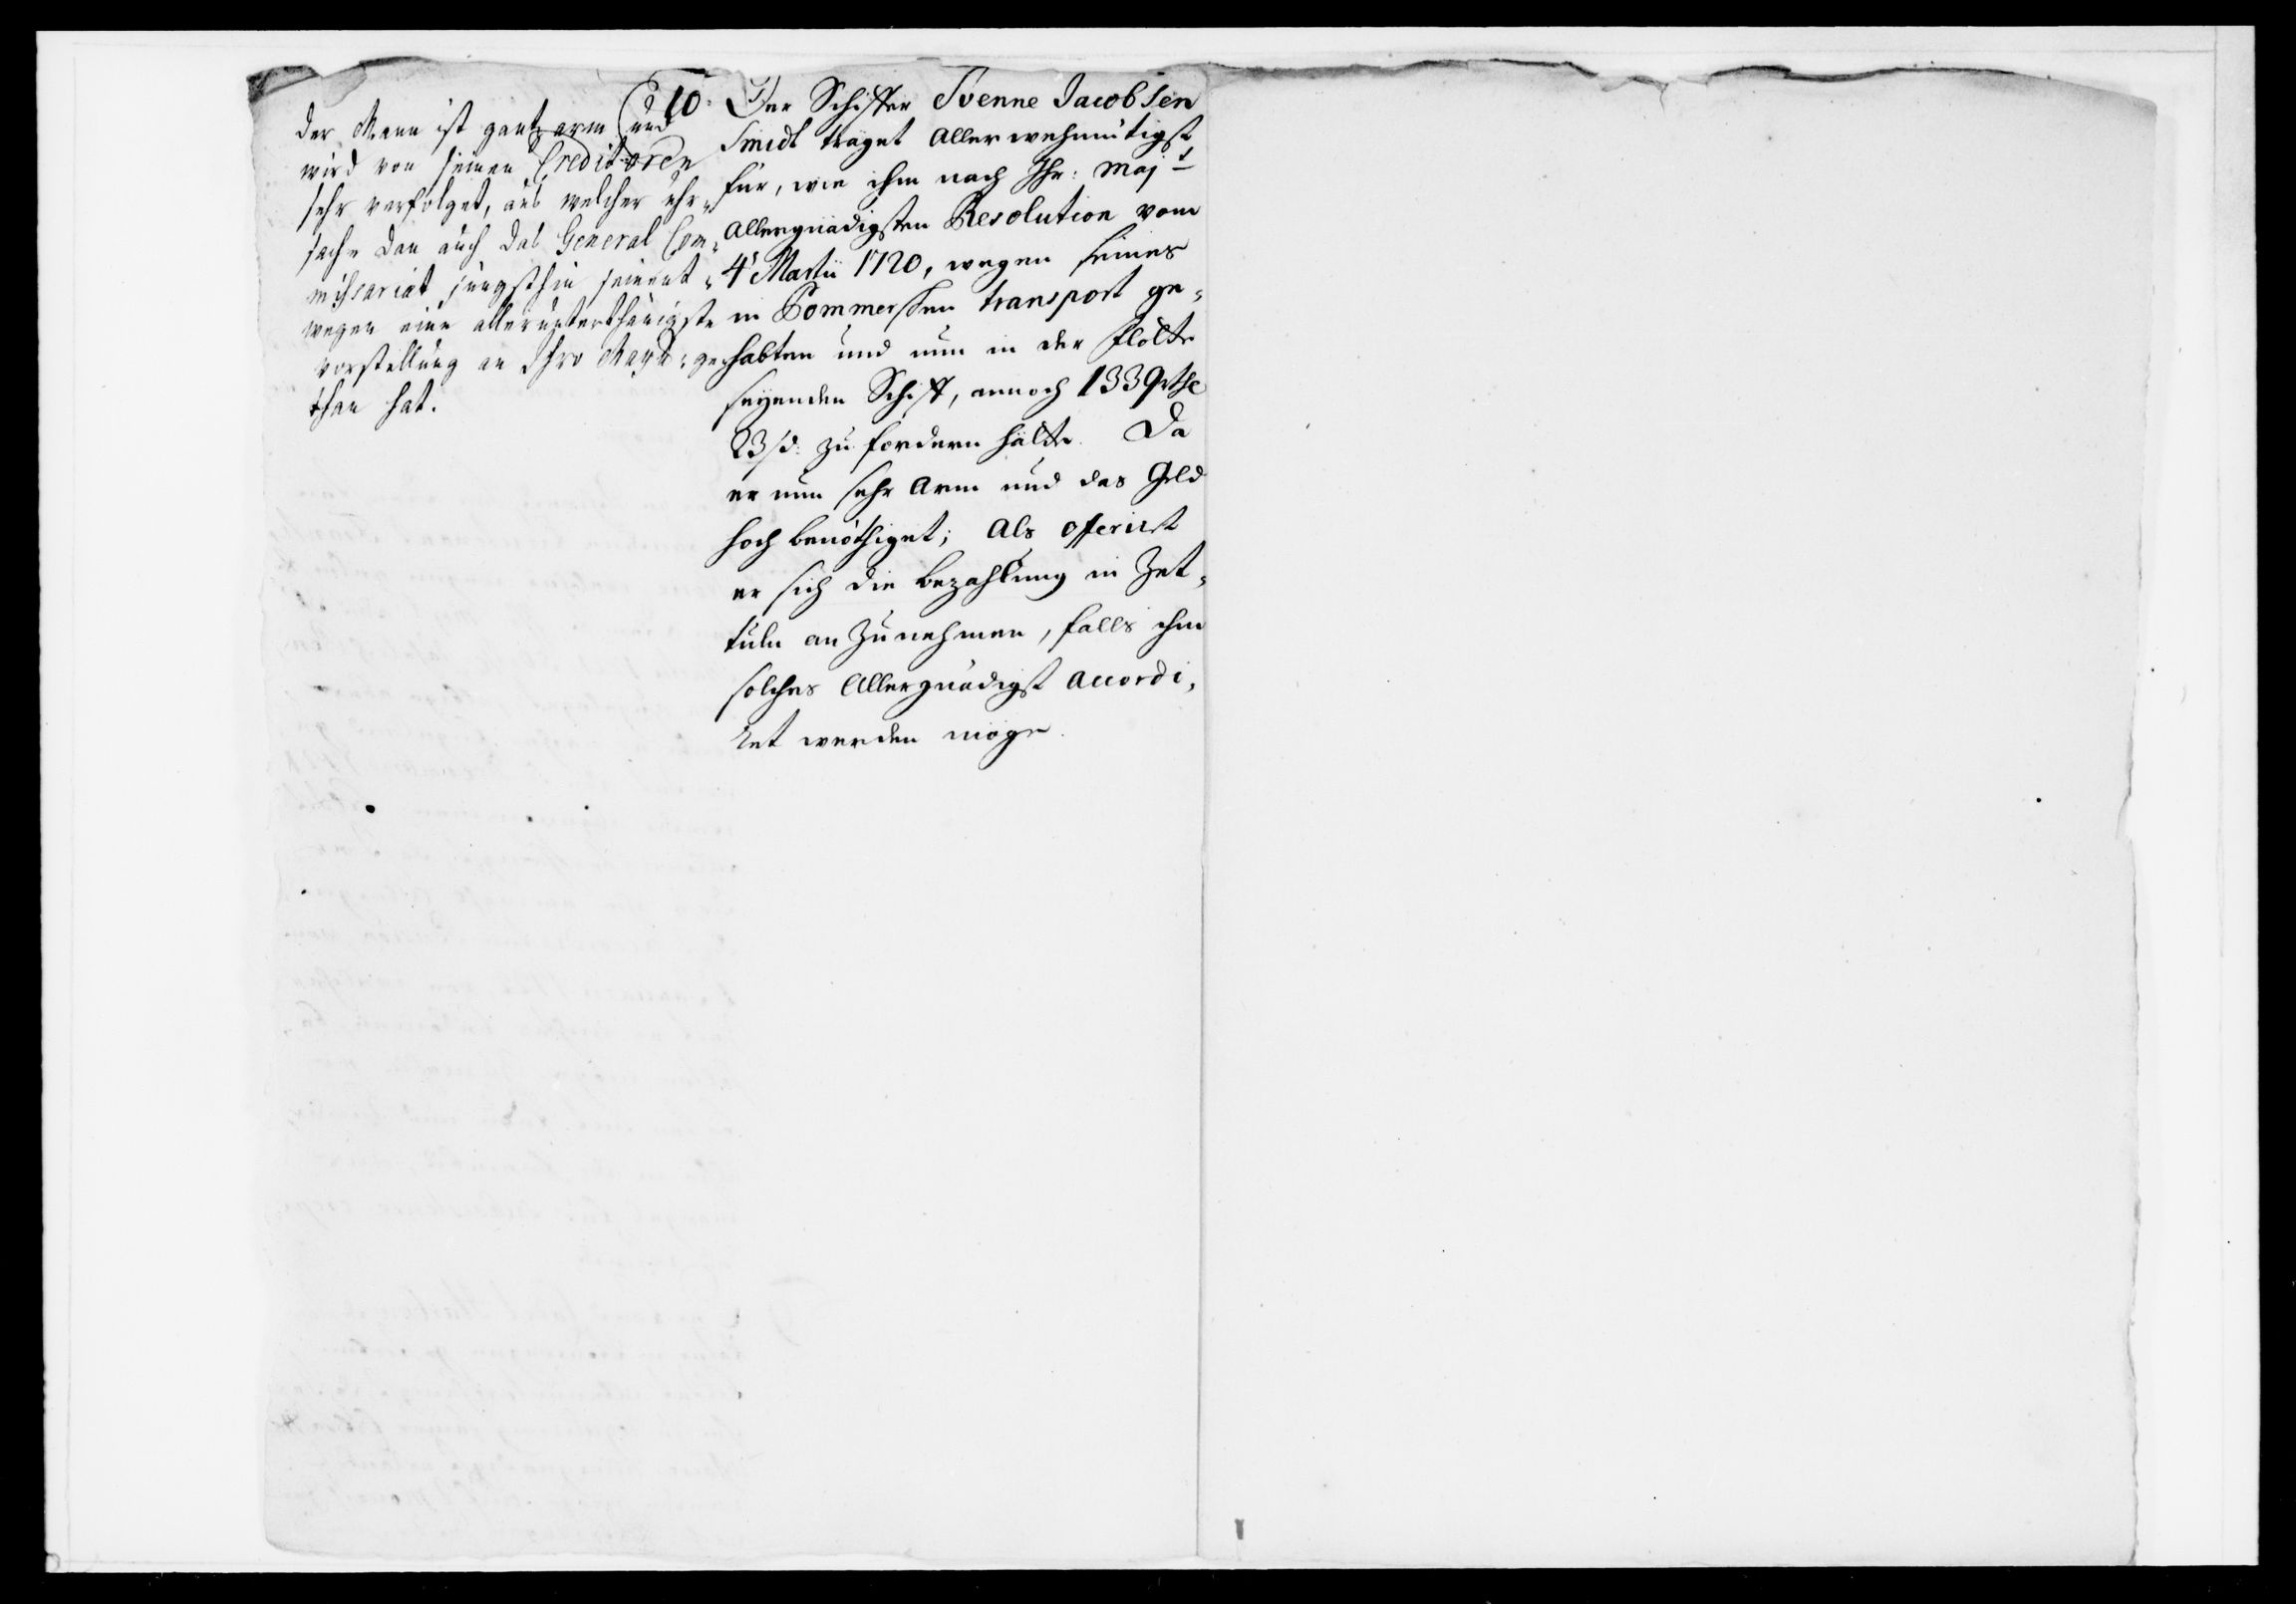 der Mann ist gantz arm und
wird von seinen Creditoren
sehr verfolget, aus welcher uhr-
sache dan auch das General Com-
missariat jüngsthin seinent-
wegen eine allerunterthänigste
vorstellung an Ihro Mayt: ge-
than hat.
10. Der Schiffer Svenne Jacobsen
Smidt träget allerwehmütigst
für, wie ihm nach Ihr: Majt
allergnädigsten Resolution vom
4t Martii 1720, wegen seines
in Pommerschen transport ge-
habten und nun in der flotte
seyenden Schiff, annoch 1339 rthe
23 ß: zu fordern hätte. Da
er nun sehr arm und das Geld
hoch benöthiget; Als offerirt
er sich die bezahlung in Zet-
tuln an Zunehmen, falls ihm
solches Allergnädigst accordi-
ret werden möge.